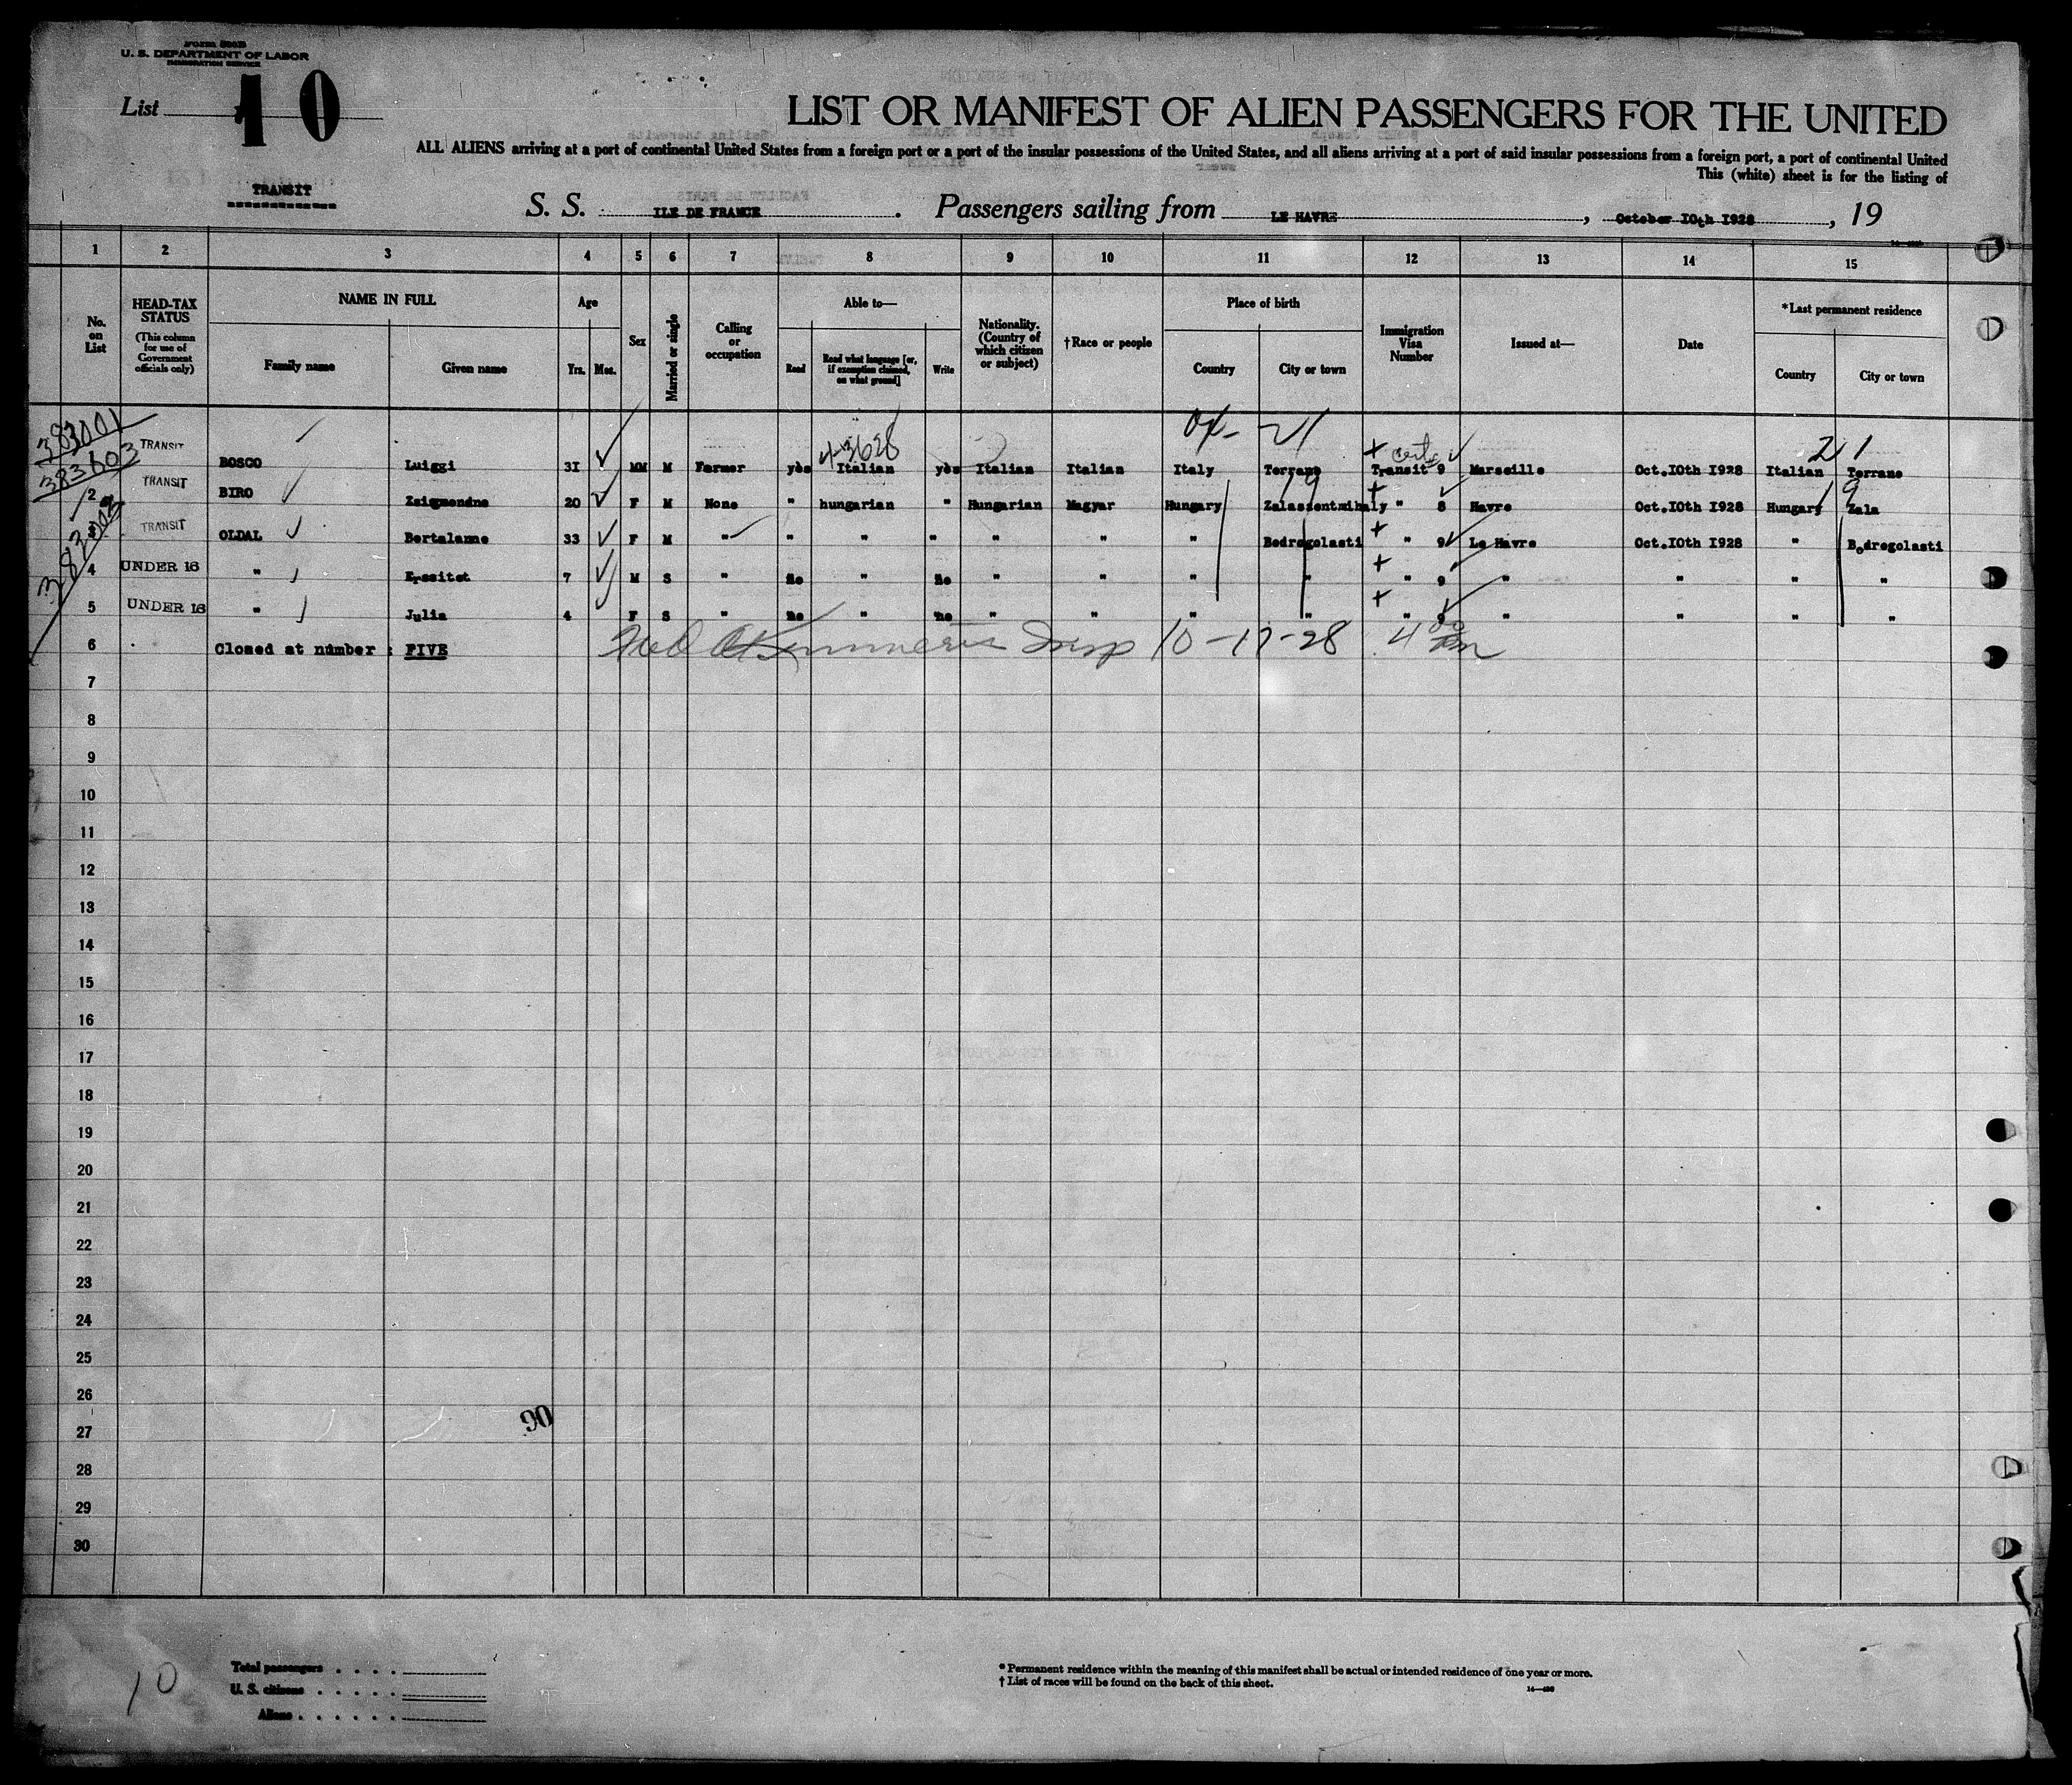 Form 500B
U. S. DEPARTMENT OF LABOR
IMMIGRATION SERVICE
List 10
LIST OR MANIFEST OF ALIEN PASSENGERS FOR THE UNITED
ALL ALIENS arriving at a port of continental United States from a foreign port or a port of the insular possessions of the United States, and all aliens arriving at a port of said insular possessions from a foreign port, a port of continental United
This (white) sheet is for the listing of
TRANSIT
S. S. ILE DE FRANCE. Passengers sailing from LE HAVRE, October 10th 1928, 19
1 2 3 4 5 6 7 8 9 10 11 12 13 14 15
No. on List
HEAD-TAX STATUS
(This column for use of Government officials only)
NAME IN FULL
Family name
Given name
Age
Yrs. Mos.
Sex
Married or single
Calling or occupation
Able to—
Read
Read what language [or, if exemption claimed, on what ground]
Write
Nationality. (Country of which citizen or subject)
†Race or people
Place of birth
Country
City or town
Immigration Visa Number
Issued at—
Date
*Last permanent residence
Country
City or town
383001
383603
4-3628
21
cert
21
TRANSIT BOSCO Luiggi 3I MM M Farmer yès Italian yès Italian Italian Italy Terrano Transit 9 Marseille Oct.IOth I928 Italian Terrano
19
19
2 TRANSIT BIRO Zsigmondne 20 F M None " hungarian " Hungarian Magyar Hungary Zalaszentmihaly " 8 Havre Oct.IOth I928 Hungary Zala
3 TRANSIT OLDAL Bertalanne 33 F M " " " " " " " Bodrogolasti " 9 Le Havre Oct.IOth I928 " Bodrogolasti
4 UNDER 16 " Erssitet 7 M S " no " no " " " " " 9 " " " "
5 UNDER 16 " Julia 4 F S " no " no " " " " " 9 " " " "
6 Closed at number : FIVE Insp 10-17-28 4 00 pm
7
8
9
10
11
12
13
14
15
16
17
18
19
20
21
22
23
24
25
26
27
28
29
30
90
10
Total passengers
U. S. citizens
Aliens
* Permanent residence within the meaning of this manifest shall be actual or intended residence of one year or more.
† List of races will be found on the back of this sheet.